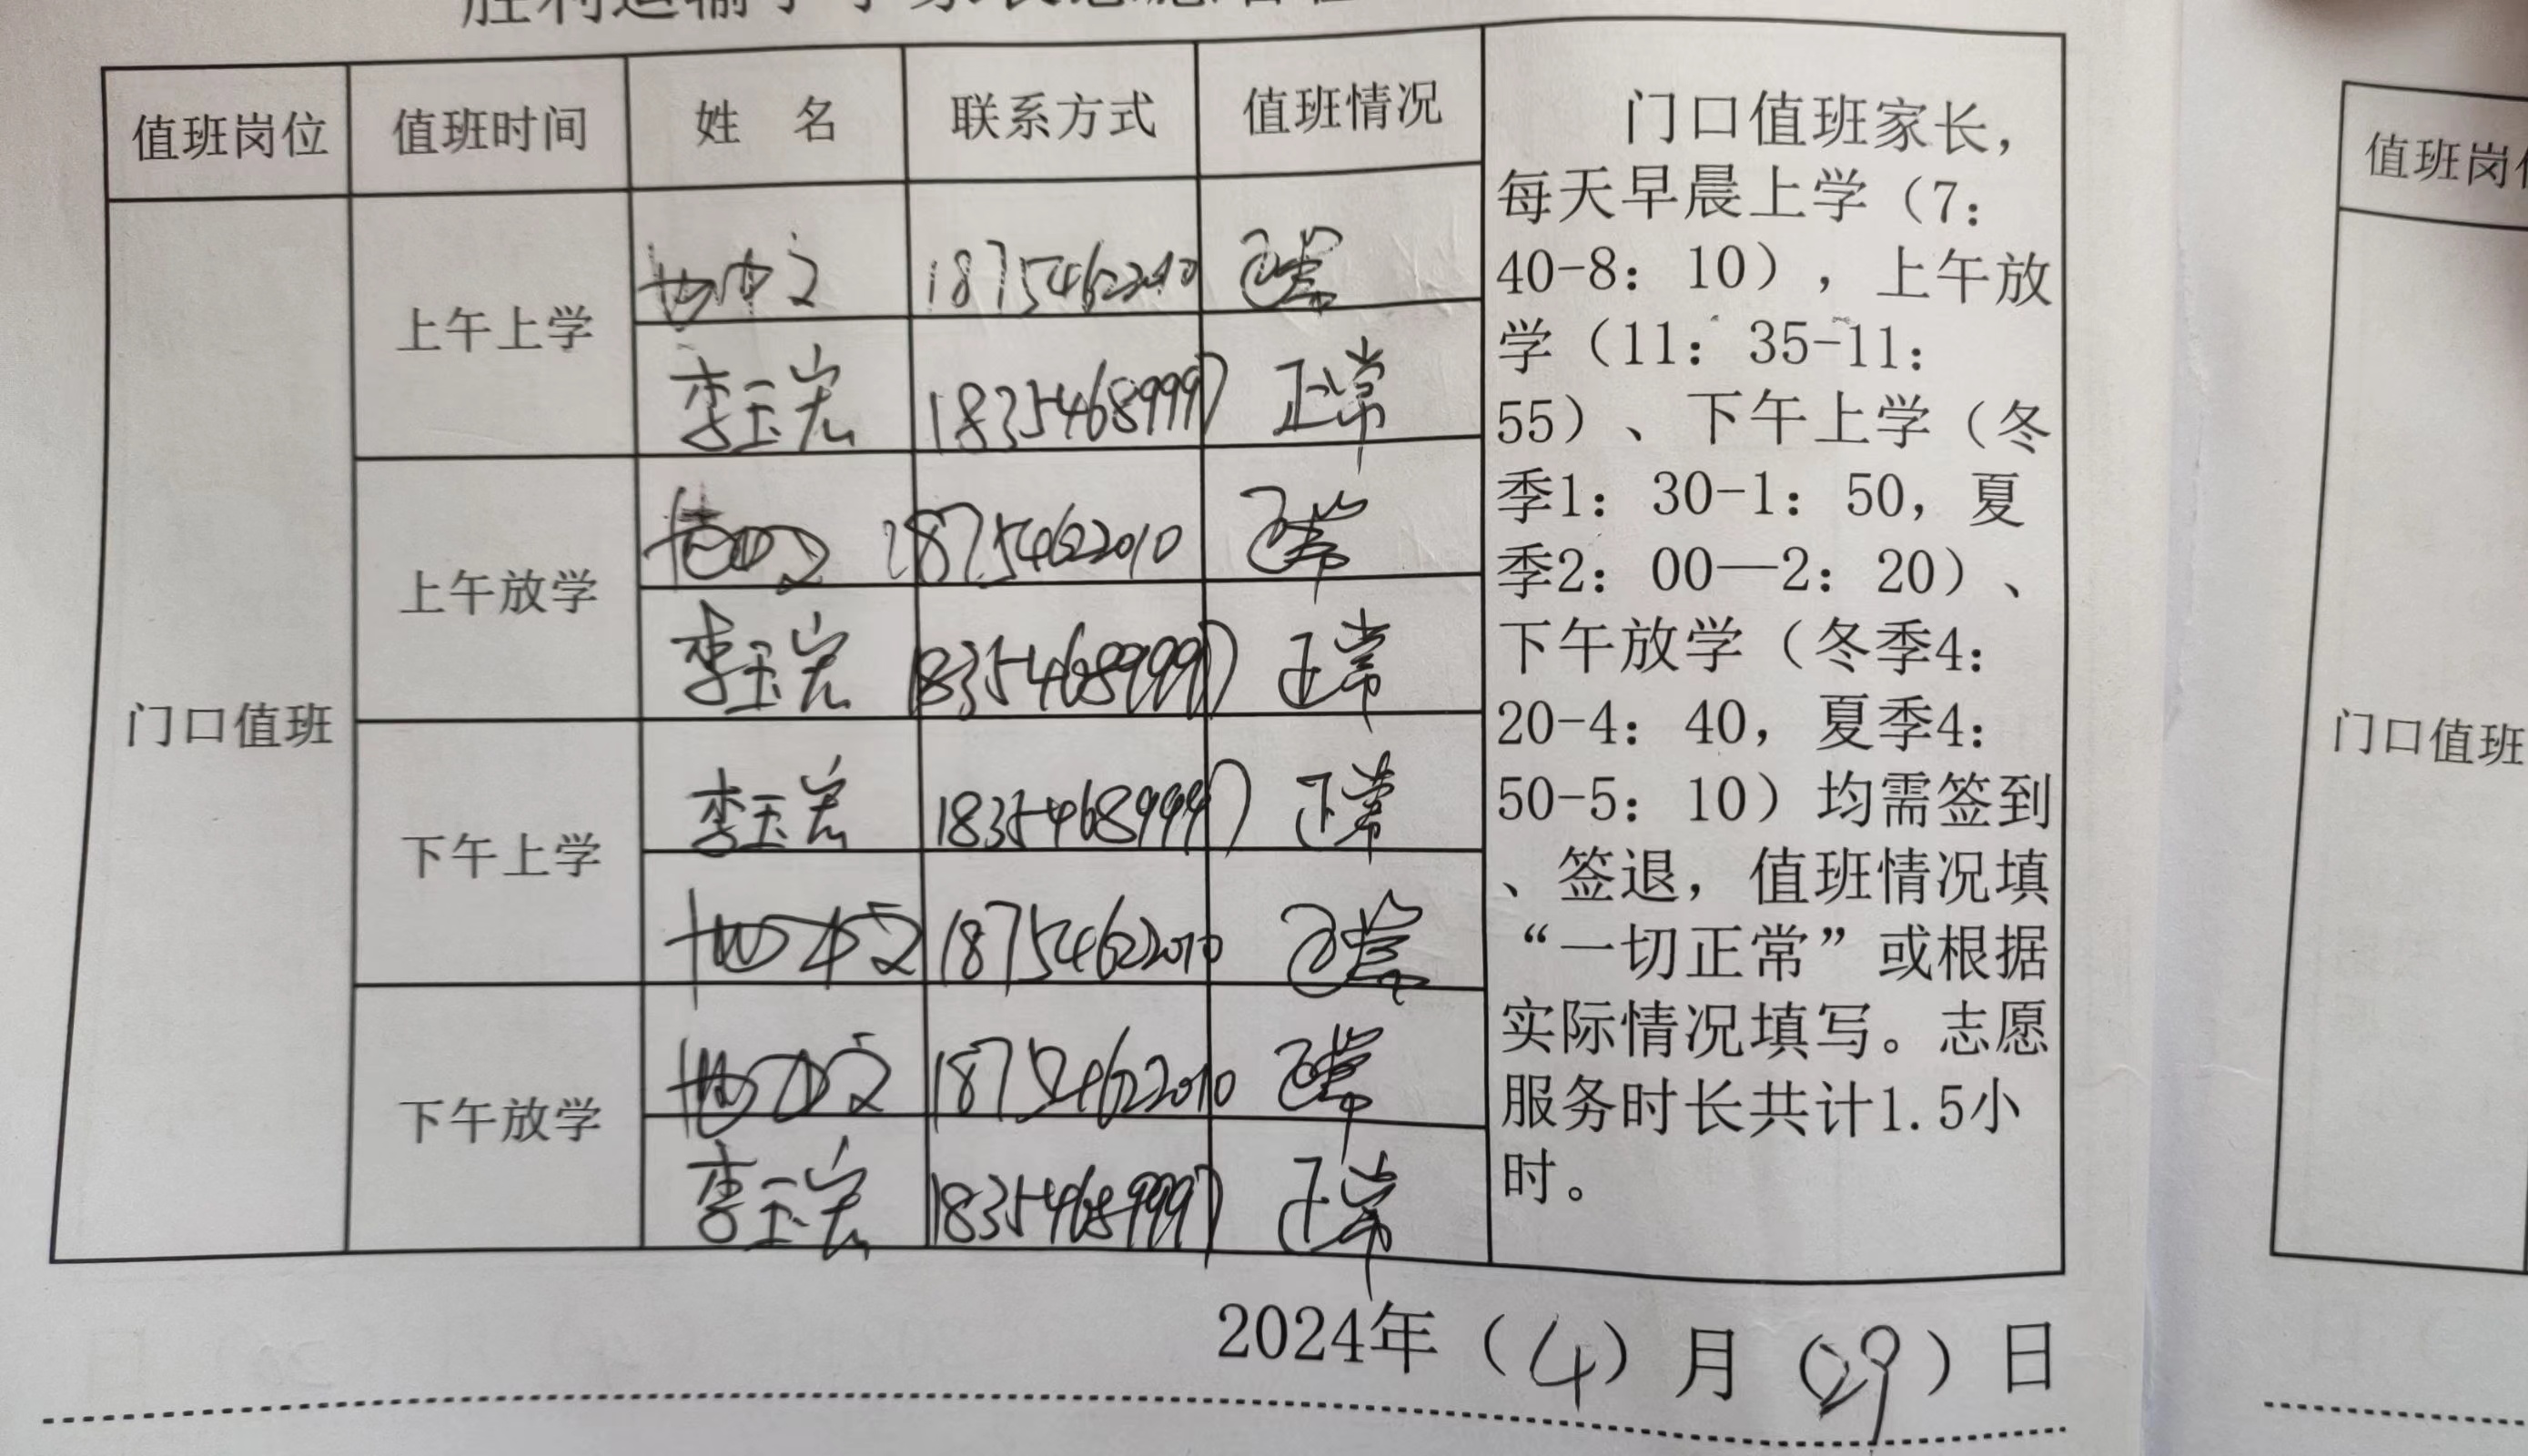 值班岗位 值班时间 姓 名 联系方式 值班情况
门口值班
上午上学
18754622010 正常
李玉宏 18354689997 正常
上午放学
18754622010 正常
李玉宏 18354689997 正常
下午上学
李玉宏 18354689997 正常
18754622010 正常
下午放学
18754622010 正常
李玉宏 18354689997 正常
门口值班家长，
每天早晨上学（7：
40-8：10），上午放
学（11：35-11：
55）、下午上学（冬
季1：30-1：50，夏
季2：00—2：20）、
下午放学（冬季4：
20-4：40，夏季4：
50-5：10）均需签到
、签退，值班情况填
“一切正常”或根据
实际情况填写。志愿
服务时长共计1.5小
时。
2024年（4）月（29）日
值班岗位
门口值班